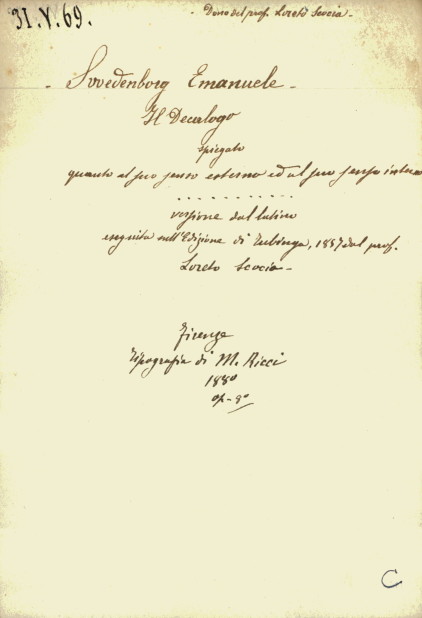 31.V.69.
- Dono del prof. Loreto Scocia -
- Svvedenborg Emanuele -
Il Decalogo
spiegato
quanto al suo senso esterno ed al suo senso interno
. . . . . . . . . . .
versione dal latino
eseguita sull'Edizione di Tubinga, 1857 dal prof.
Loreto Scocia -
Firenze
Tipografia di M. Ricci
1880
op-8°
C